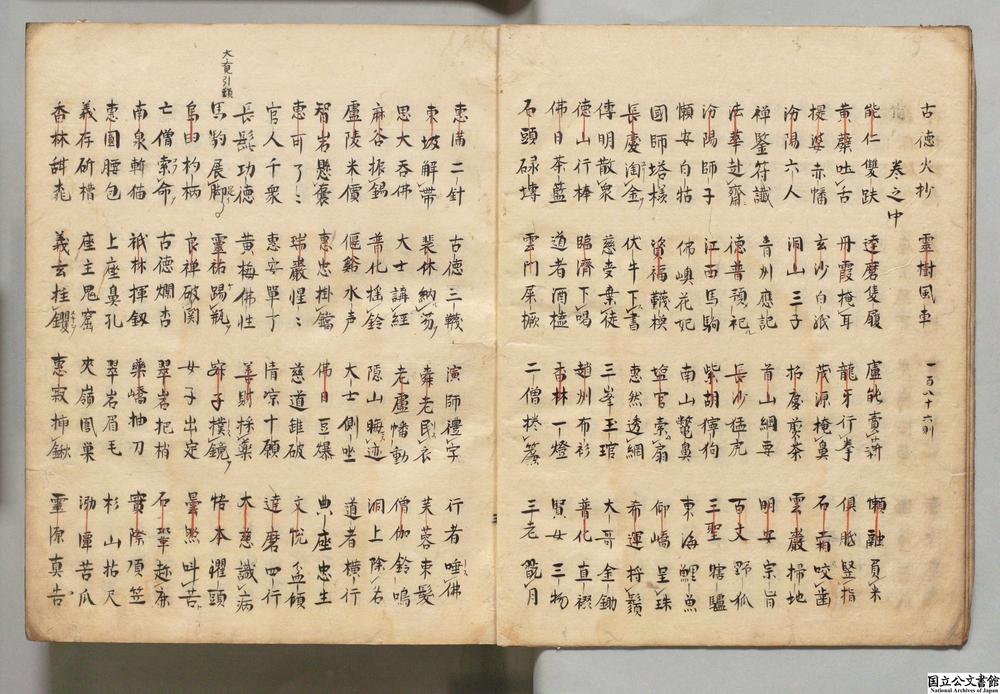 古德火抄　靈樹風車　一百八十六則
卷之中
能仁雙趺　達磨隻履　盧能賣薪　懶融負米
黄蘗吐舌　丹霞掩耳　龍牙行拳　俱胝竪指
提婆赤幡　玄沙白紙　茂源掩鼻　石霜咬齒
汾陽六人　洞山三子　招慶煎茶　雲巖掃地
禅鑒符識　青州應記　首山綱要　明安宗旨
法華赴齋　德普預祀　長沙猛虎　百丈野狐
汾陽師子　江西馬駒　紫胡獰狗　三聖瞎驢
懶安白牯　佛嶼花妃　南山鼈鼻　東海鯉魚
國師塔樣　資福韈樣　塩官索扇　仰嶠呈珠
長慶淘金　伏牛下書　惠然透網　希運捋鬚
傳明散衆　慈受棄徒　三峯玉琯　大哥金鋤
德山行棒　臨濟下喝　趙州布衫　普化直裰
佛日茶籃　道者酒榼　香林一燈　賢女三物
石頭碌塼　雲門屎橛　二僧捲簾　三老翫月
惠満二針　古德三韈　演師禮字　行者唾佛
東坡解帯　裴休納笏　舜老民衣　芙蓉束髪
思大呑佛　大士講經　老盧幡動　僧伽鈴鳴
麻谷振錫　普化揺鈴　隠山晦迹　洞上除名
盧陵米價　偃谿水声　大士側坐　道者横行
智岩懸嚢　惠忠掛鐺　佛日豆爆　典座忠生
惠可了々　瑞巖惺々　慈道錐破　文悦盃傾
官人千衆　惠安單丁　清凉十願　達磨四行
長髭功德　黄梅佛性　善財採藥　大慈識病
馬駒展脚　靈祐踢瓶　子撲鏡　悟本濯頭
烏臼杓柄　良禅破関　女子出定　曇照叫苦
亡僧索命　古德爛杏　翠岩把梢　石鞏趁鹿
南泉斬猫　祇林揮釼　藥嶠抽刀　寶際頂笠
惠圓腰包　上座鼻孔　翠岩眉毛　杉山拈尺
義存斫槽　座主鬼窟　夾嶺鳳巣　泐潭苦瓜
香林甜桃　義玄拄钁　惠寂揷鍬　靈源真告
国立公文書館
National Archives of Japan